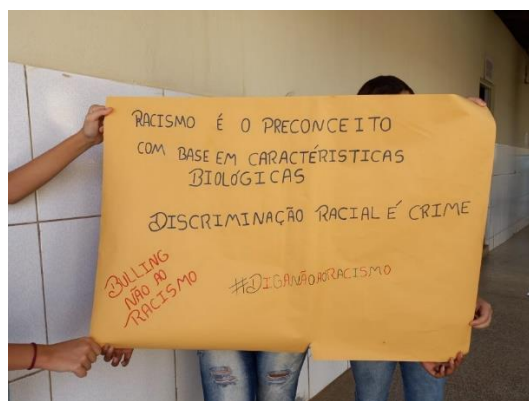 RACISMO É O PRECONCEITO
COM BASE EM CARACTÉRISTICAS
BIOLÓGICAS
DISCRIMINAÇÃO RACIAL É CRIME
BULLING
NÃO AO
RACISMO
#DIGANÃOAORACISMO